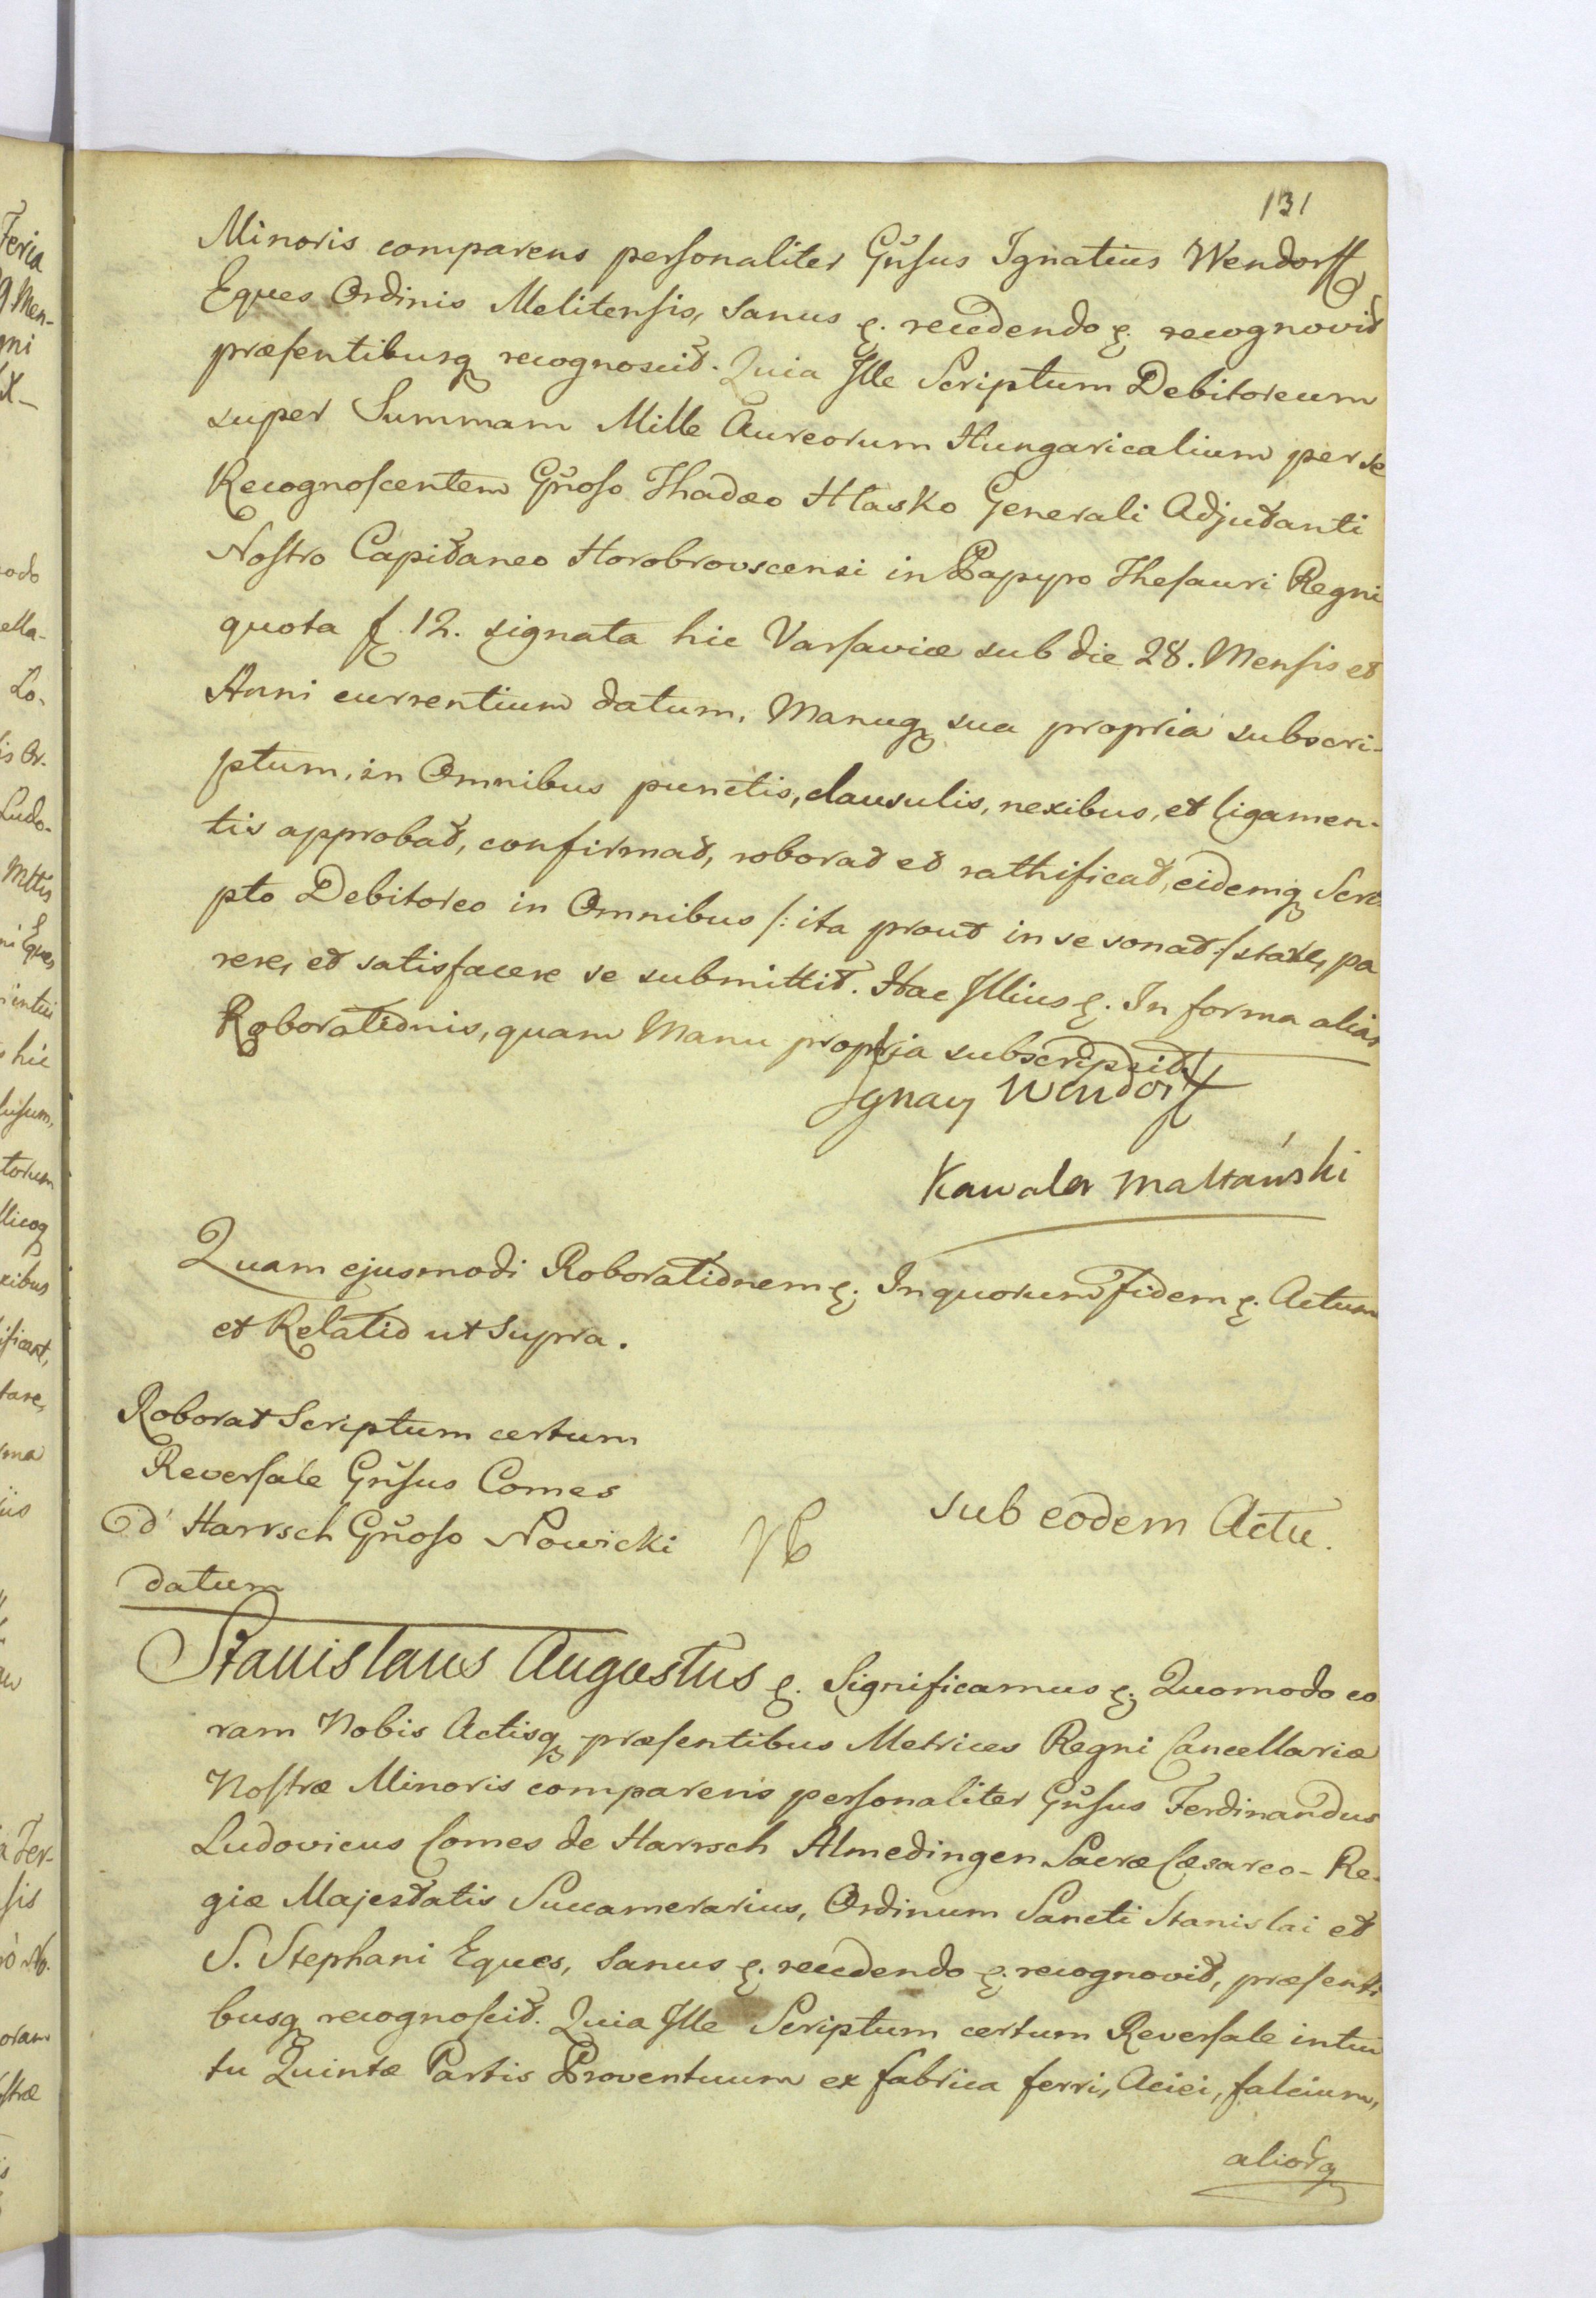 131
Minoris comparens personaliter Gn̆sus Ignatius Wendorff
Eques Ordinis Melitensis, sanus &. recedendo &. recognovit
præsentibusq recognoscit. Quia Ille Scriptum Debitoreum
super Summam Mille Aureorum Hungaricalium per se
Recognoscentem Gn̆oso Thadæo Hłasko Generali Adjutanti
Nostro Capitaneo Horobrovscensi in Papyro Thesauri Regni
quota f. 12. signata hic Varsaviæ sub die 28. Mensis et
Anni currentium datum, Manuq sua propria subscri-
ptum, in Omnibus punctis, clausulis, nexibus, et ligamen-
tis approbat, confirmat, roborat et rathificat, eidemq Scri-
pto Debitoreo in Omnibus /: ita prout in se sonat :/ stare, pa
rere, et satisfacere se submittit. Hac Illius &. In forma alias
Roborationis, quam Manu propria subscripsit.
Ignacy Wendorff
Kawaler Maltański
Quam ejusmodi Roborationem &. In quorum fidem &. Actum
et Relatio ut supra.
Roborat Scriptum certum
Reversale Gn̆sus Comes
d' Harrsch Gn̆oso Nowicki
datum
sub eodem Actu.
Stanislaus Augustus &. Significamus &. Quomodo co
ram Nobis Actisq præsentibus Metrices Regni Cancellariæ
Nostræ Minoris comparens personaliter Gn̆sus Ferdinandus
Ludovicus Comes de Harrsch Almedingen Sacræ Cæsareo-Re-
giæ Majestatis Succamerarius, Ordinum Sancti Stanislai et
S. Stephani Eques, sanus &. recedendo &. recognovit, præsenti
busq recognoscit. Quia Ille Scriptum certum Reversale intui
tu Quintæ Partis Proventuum ex fabrica ferri, Aciei, falcium,
aliorq